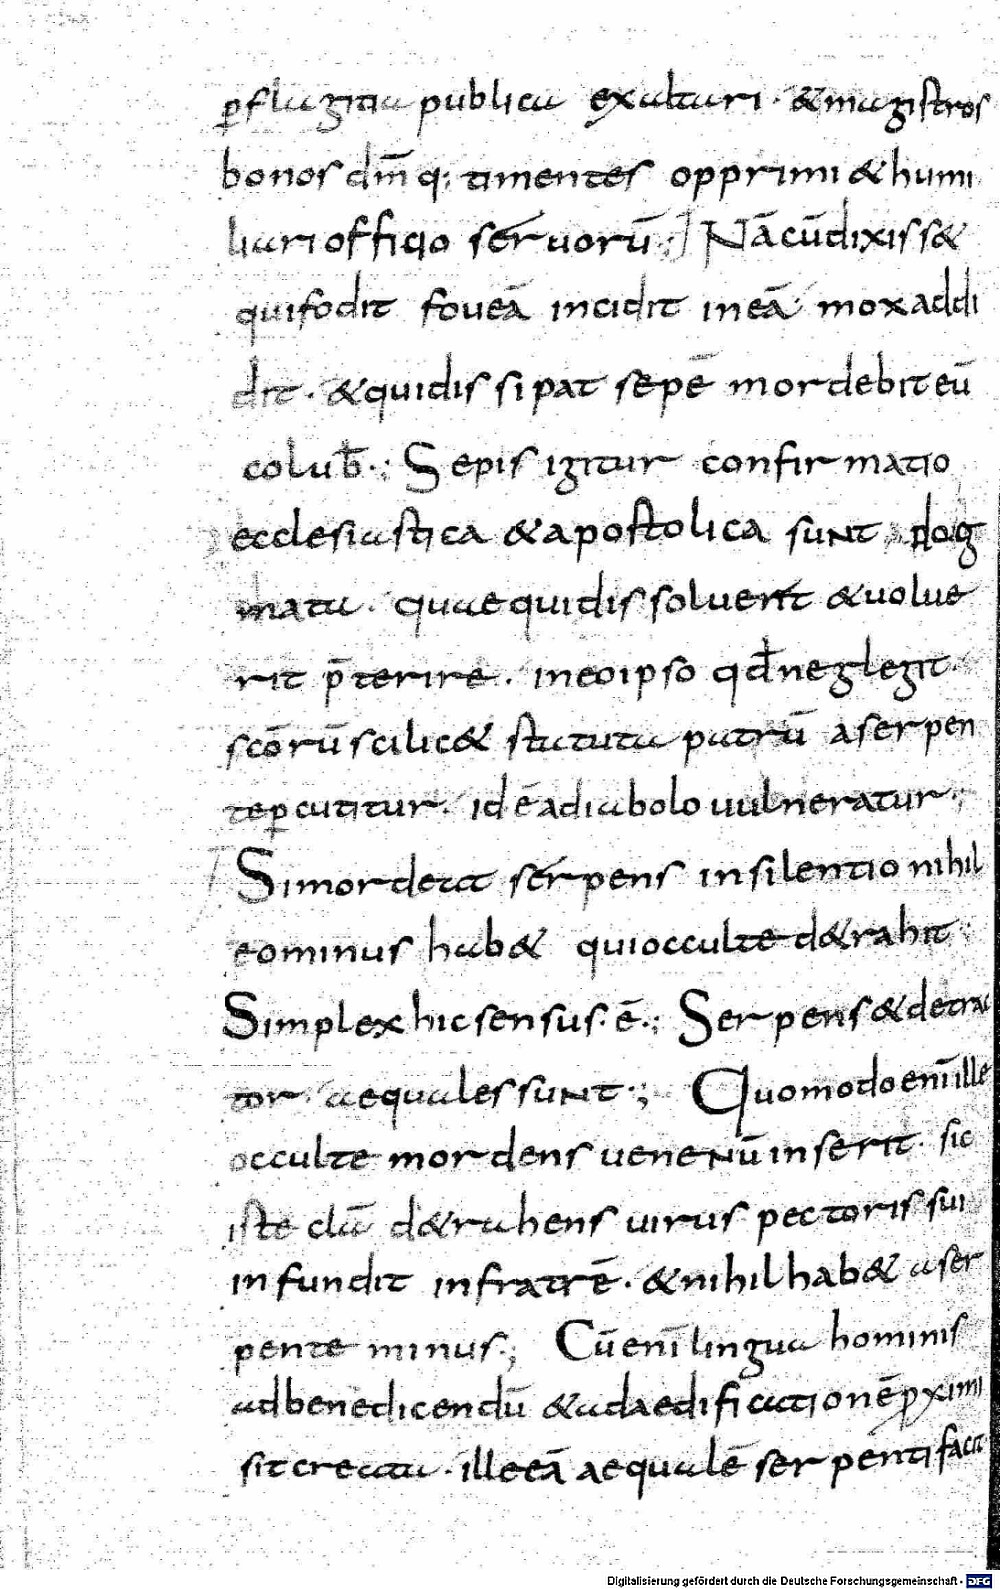 ꝑflagitia publica exaltari · & magistros
bonos dm̄q; timentes opprimi & humi
liari officio seruorū ·; Nācūdixiss&
quifodit foueā incidit ineā · moxaddi
dit · & quidissipat sepē mordebit eū
colub̄ ·; Sepis igitur confirmatio
ecclesiastica & apostolica sunt dog
mata · quae quidissoluerit & uolue
rit p̄terire · ineoipso qd̄ neglegit ·
scōrū scilic& statuta patrū aserpen
teꝑcutitur · id ē adiabolo uulneratur ·;
Simordeat serpens insilentio nihil
eominus hab& quiocculte d&rahit ·
Simplex hic sensus · ē ·; Serpens & detrac
tor aequales sunt ·; Quomodo enī ille
occulte mordens uenenū inserit · sic
iste clā d&rahens uirus pectoris sui
infundit infratrē · & nihil hab& aser
pente minus ·; Cū enī lingua hominis
adbenedicendū & adaedificationē ꝓximi
sit creata · ille eā aequalē serpenti facit
Digitalisierung gefördert durch die Deutsche Forschungsgemeinschaft - DFG